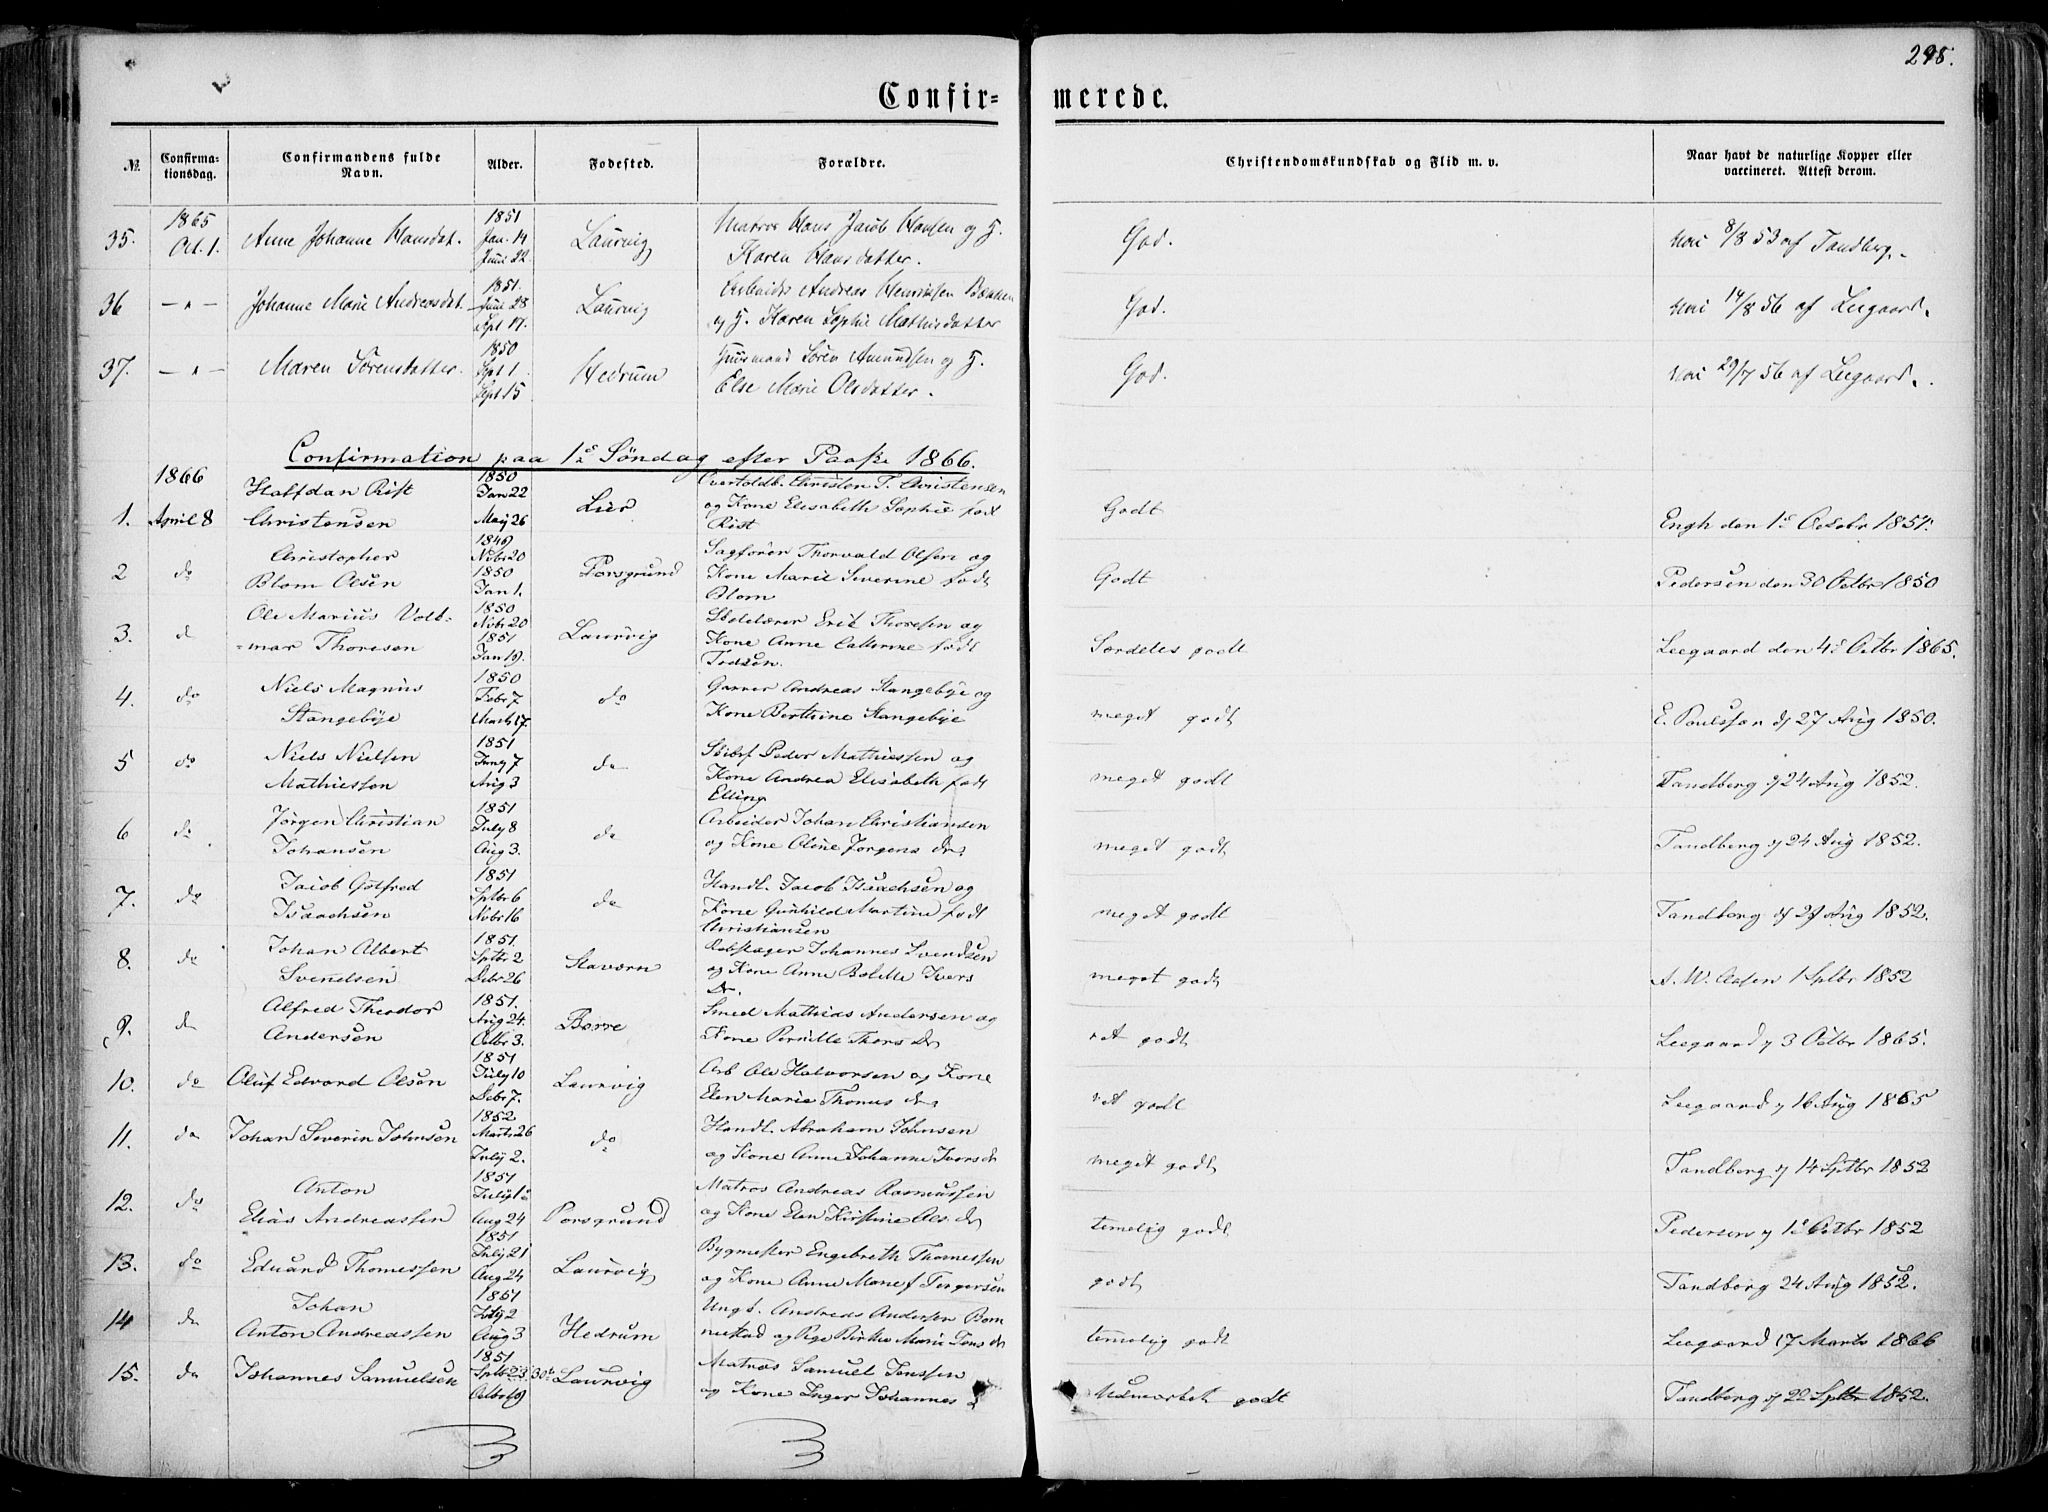 298.
Confir= merede.
No. Confirma-tionsdag. Confirmandens fulde Navn. Alder. Fødested. Forældre. Christendomskundskab og Flid m. v. Naar havt de naturlige Kopper eller vaccineret. Attest derom.
1865 1851 Matros Hans Jacob Hansen og H.
35. Oct. 1. Anne Johanne Hansdat. Jan. 14 Juni 22. Laurvig Karen Hansdatter. God. vac 8/8 53 af Tandberg.
1851. Arbeids Andreas Henriksen Bakken
36 — " — Johanne Marie Andreasdat. Juni 28 Spt 17. Laurvig og H. Karen Sophie Mathisdatter God. vac 14/8 56 af Leegaard.
1850 Huusmand Søren Amundsen og H.
37. — " — Maren Sørensdatter. Spt 1. Sept 15 Hedrum Else Marie Olsdatter. God. vac 29/7 56 af Leegaard.
Confirmation paa 1e Søndag efter Paaske 1866.
1866 Halfdan Rist 1850 Jan 22 Overtoldb. Christen T. Christensen
1. April 8 Christensen Maij 26 Lier og Kone Elisabeth Sophie født Rist Godt Engh den 1e Octobr 1851.
Christopher 1849 Nvbr 20 Sagfører Thorvald Olsen og
2 do Blom Olsen 1850 Jan 1. Porsgrund Kone Marie Severine født Blom Godt Pedersen den 30 Octbr 1850
Ole Marius Vold- 1850 Nvbr 20 Skolelærer Erik Thoresen og
3. do =mar Thoresen 1851 Jan 19. Laurvig Kone Anne Cathrine født Særdeles godt Leegaard den 4de Octbr 1865.
Niels Magnus 1850 Febr 7 Garver Andreas Stangebye og
4. do Stangebye Marts 17. do Kone Berthine Stangebye meget godt E. Poulssøn d 27 Aug 1850.
Niels Nielsen 1851 Juny 7 Skibsf Peder Mathiessen og
5 do Mathiessen Aug 3 do Kone Andrea Elisabeth født Elling meget godt Tandberg d 24 Aug 1852.
Jørgen Christian 1851 July 8 Arbeider Johan Christiansen
6 do Johansen Aug 3. do og Kone Oline Jørgens dr meget godt Tandberg d 24 Aug 1852.
Jacob Gotfred 1851 Sptbr 6 Handl. Jacob Isaachsen og
7. do Isaachsen Nvbr 16 do Kone Gunhild Martine født Christiansen meget godt Tandberg d 27 Aug 1852.
Johan Albert 1851. Sptbr 2 Rebslager Johannes Svendsen
8. do Svendsen Debr 26 Stavern og Kone Anne Bolette Ivers Dr. meget godt A. W. Aasen 1 Sptbr 1852
Alfred Theodor 1851. Aug 24. Smed Mathias Andersen og
9. do Andersen Octbr 3. Borre Kone Pernille Thors Dr ret godt Leegaard d 3 Octbr 1865.
1851 July 10 Arb Ole Halvorsen og Kone
10. do Oluf Edvard Olsen Debr 7. Laurvig Elen Marie Thomas dr ret godt Leegaard d 16 Aug 1865
1852 Marts 26 Handl. Abraham Johnsen
11. do Johan Severin Johnsen July 2. do og Kone Anne Johanne Ivers dr meget godt Tandberg d 14 Sptbr 1852
Anton 1851 July 1e Matros Andreas Rasmussen
12. do Elias Andreassen Aug 24 Porsgrund og Kone Elen Kirstine Ols. dr temelig godt Pedersen d 1e Octbr 1852
1851 July 21 Bygmester Engebreth Thomessen
13. do Eduard Thomessen Aug 24 Laurvig og Kone Anne Marie f Torgersen godt Tandberg 24 Aug 1852.
Johan 1851 July 2 Ungk. Andreas Andersen Bom
14 do Anton Andreassen Aug 3 Hedrum nestad og Pige Birthe Marie Jens dr temelig godt Leegaard 17 Marts 1866
1851 Sptbr 23. Matros Samuel Jenssen
15. do Johannes Samuelsen Octbr 19 Laurvig og Kone Inger Johannes d Udmærket godt Tandberg d 22 Sptbr 1852.